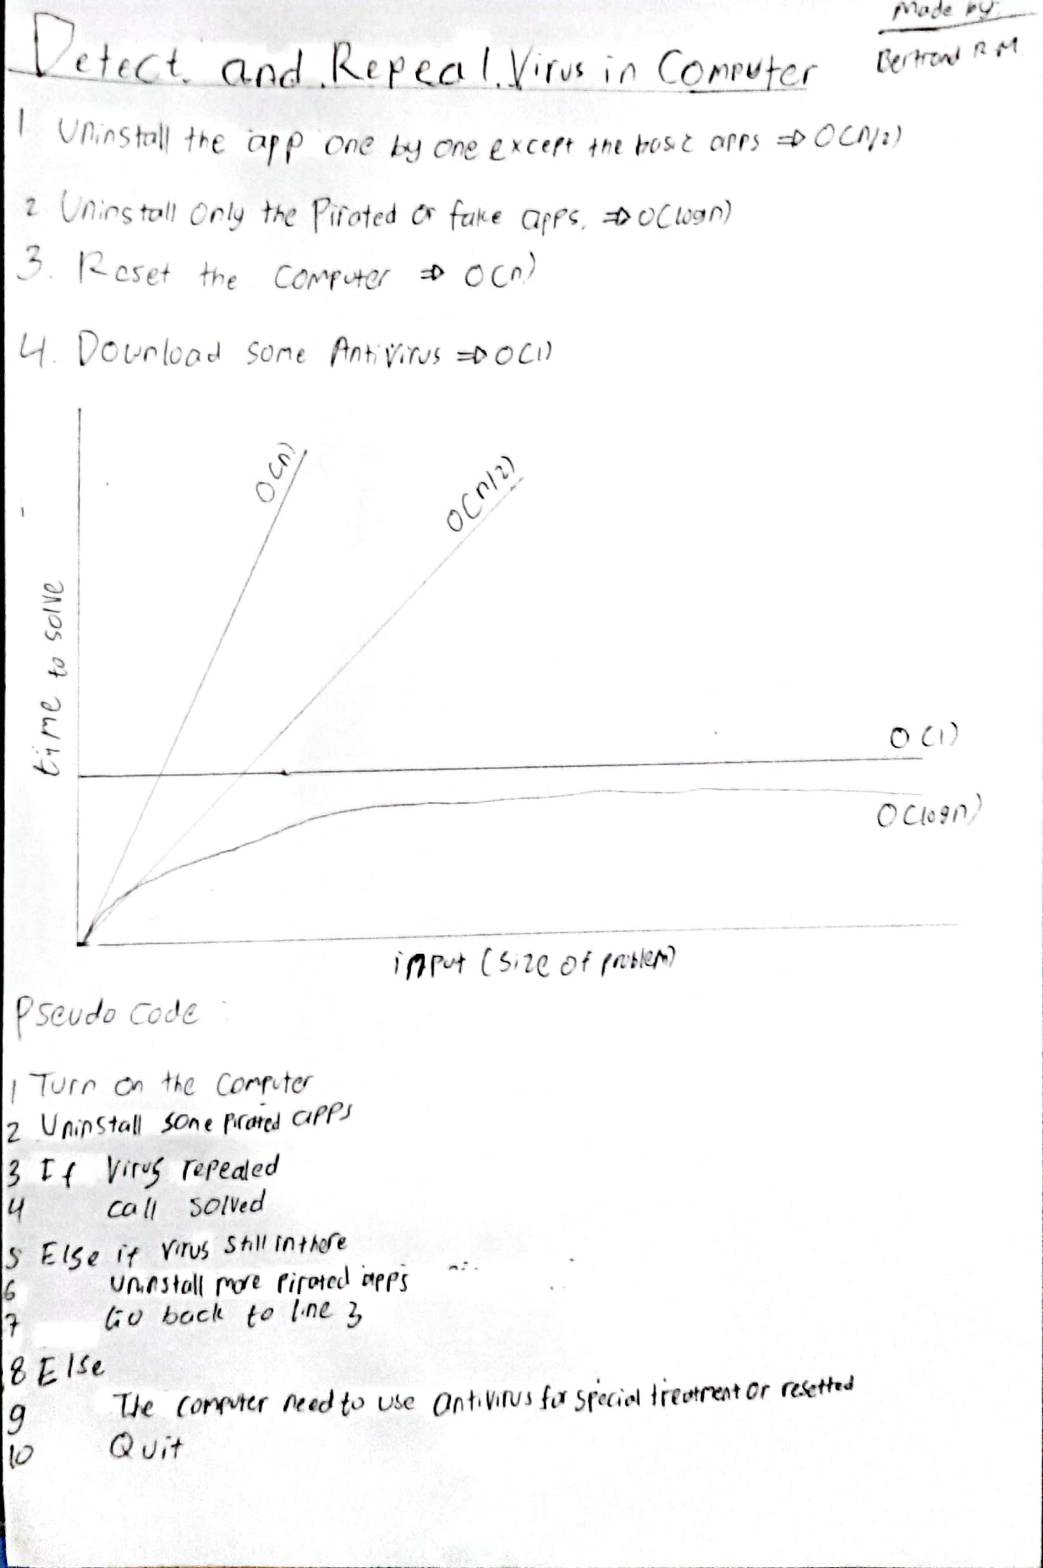 Made by:
Bertrand R M
Detect and Repeal Virus in Computer
1 Uninstall the app one by one except the basic apps => O(n/2)
2 Uninstall only the Pirated or fake apps. => O(logn)
3. Reset the computer => O(n)
4. Download some Antivirus => O(1)
O(n)
O(n/2)
time to solve
O(1)
O(logn)
input (size of problem)
Pseudo code :
1 Turn on the computer
2 Uninstall some pirated apps
3 If Virus repealed
4 call solved
5 Else if virus still in there
6 uninstall more pirated apps
7 Go back to line 3
8 Else
9 The computer need to use antivirus for special treatment or resetted
10 Quit